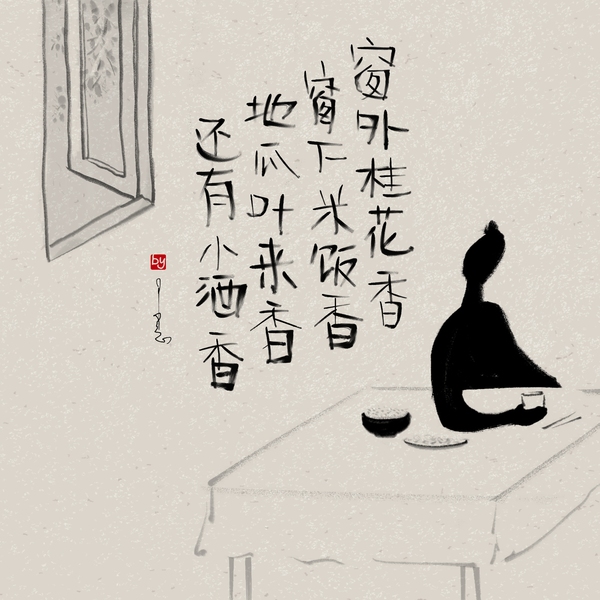 窗外桂花香
窗下米饭香
地瓜叶来香
还有小酒香
by